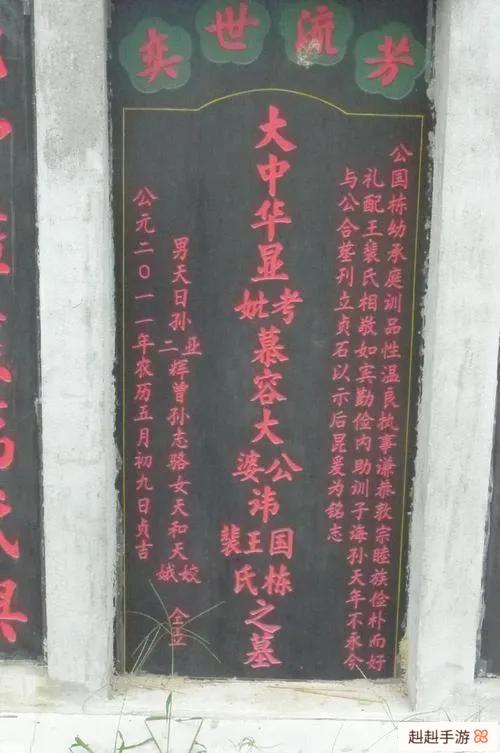 芳流世奕
公国栋幼承庭训品性温良执事谦恭敦宗睦族俭朴而好
礼配王裴氏相敬如宾勤俭内助训子海孙天年不永今
与公合茔列立贞石以示后昆爰为铭志
大中华显考妣慕容大公婆讳国栋王裴氏之墓
男天日孙亚二辉曾孙志骆女天和天姣娥 仝立
公元二0一一年农历五月初九日贞吉
赳赳手游